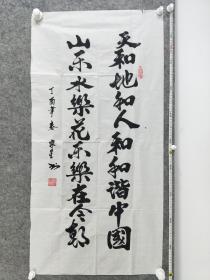 天和地和人和和谐中國
山乐水樂花乐樂在今朝
丁酉年春